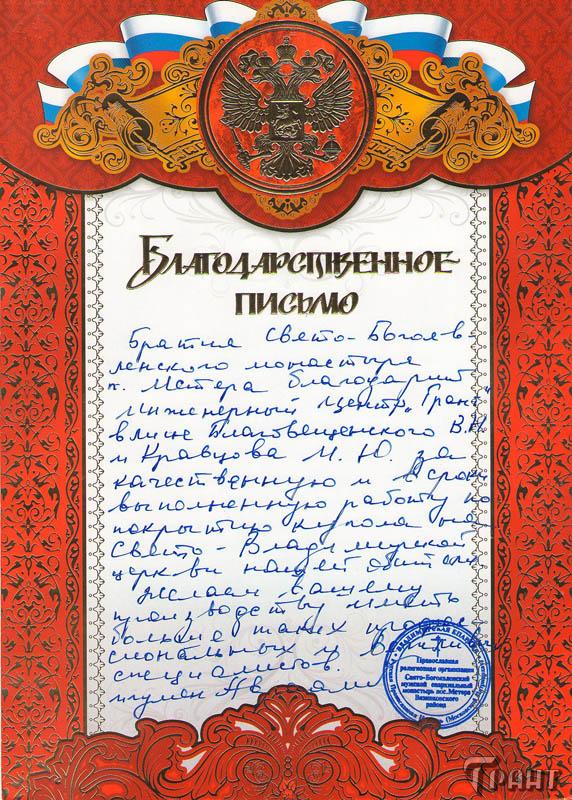 Благодарственное
письмо
Братия Свято-Богояв-
ленского монастыря
п. Мстера благодарит
инженерный центр „Грант"
в лице Благовещенского В.Н
и Кравцова М. Ю. за
качественную и в срок
выполненную работу по
покрытию купола на
Свято-Владимирской
церкви нашей обители.
Желаем вашему
производству иметь
больше таких
специалистов.
игумен
Православная
религиозная организация
Свято-Богоявленский
мужской епархиальный
монастырь пос.Мстера
Вязниковского
района
Грант